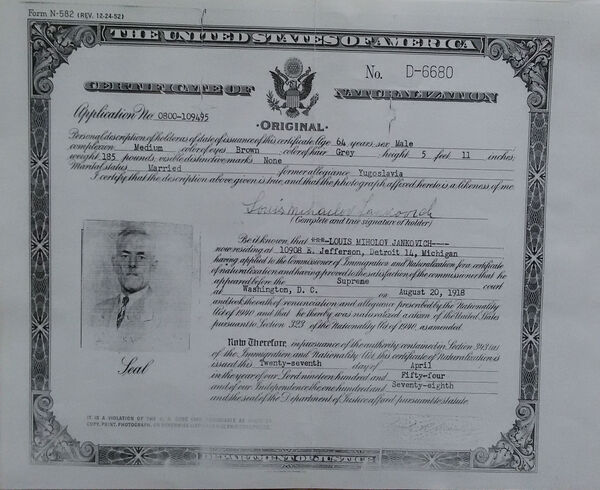 Form N-582 (REV. 12-24-52)
THE UNITED STATES OF AMERICA
No. D-6680
CERTIFICATE OF NATURALIZATION
Application No. 0800-109495
·ORIGINAL·
Personal description of holder as of date of issuance of this certificate: Age 64 years; sex Male
complexion Medium color of eyes Brown color of hair Grey height 5 feet 11 inches;
weight 185 pounds; visible distinctive marks None
Marital status Married former allegiance Yugoslavia
I certify that the description above given is true, and that the photograph affixed hereto is a likeness of me.
Louis Mihailov Jancovich
(Complete and true signature of holder)
Be it known, that ***-LOUIS MIHOLOV JANKOVICH----
now residing at 10908 E. Jefferson, Detroit 14, Michigan
having applied to the Commissioner of Immigration and Naturalization for a certificate
of naturalization and having proved to the satisfaction of the commissioner that he
appeared before the Supreme court
at Washington, D. C. on August 20, 1918
and took the oath of renunciation and allegiance prescribed by the Nationality
Act of 1940 and that he thereby was naturalized a citizen of the United States
pursuant to Section 323 of the Nationality Act of 1940, as amended.
Now Therefore, in pursuance of the authority contained in Section 343(a)
of the Immigration and Nationality Act, this certificate of Naturalization is
issued this Twenty-seventh day of April
in the year of our Lord nineteen hundred and Fifty-four
and of our Independence the one hundred and Seventy-eighth
and the seal of the Department of Justice affixed pursuant to statute.
Seal
IT IS A VIOLATION OF THE U. S. CODE (AND PUNISHABLE AS SUCH) TO
COPY, PRINT, PHOTOGRAPH, OR OTHERWISE
DEPARTMENT OF JUSTICE